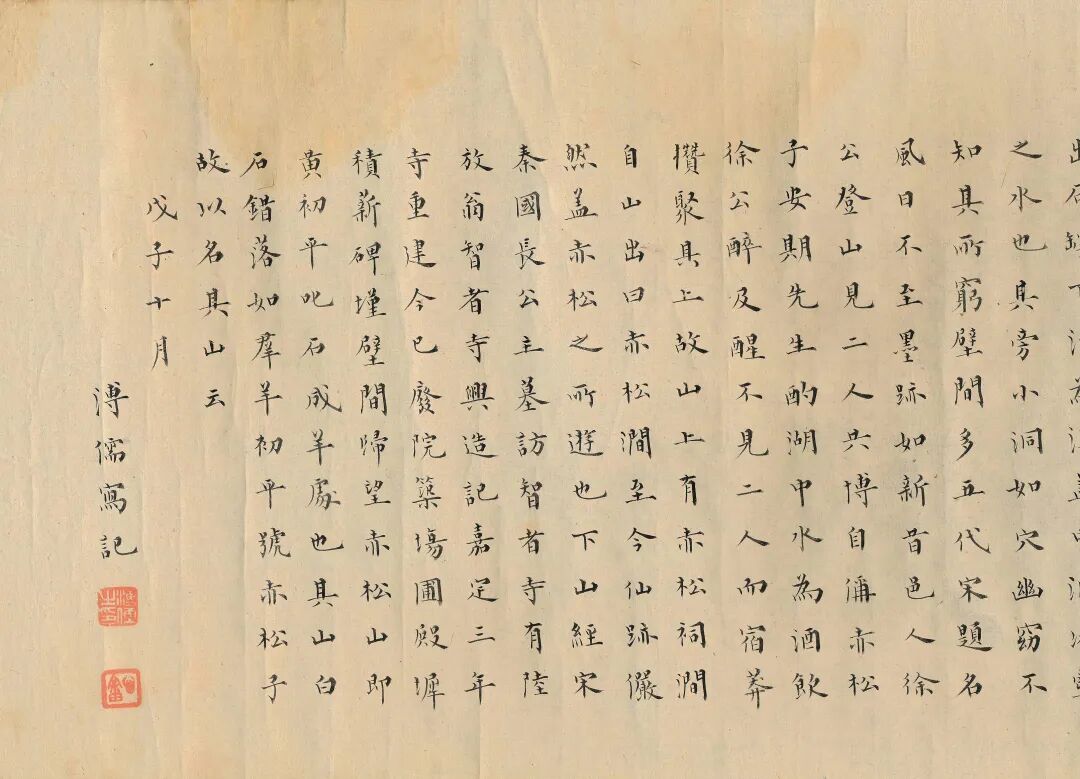 之水也其旁小洞如穴幽窈不
知其所窮壁間多五代宋題名
風日不至墨跡如新昔邑人徐
公登山見二人共博自偁赤松
子安期先生酌湖中水為酒飲
徐公醉及醒不見二人而宿莽
攢聚其上故山上有赤松祠澗
自山出曰赤松澗至今仙跡儼
然盖赤松之所遊也下山經宋
秦國長公主墓訪智者寺有陸
放翁智者寺興造記嘉定三年
寺重建今已廢院築場圃殿墀
積薪碑墐壁間歸望赤松山即
黃初平叱石成羊處也其山白
石錯落如羣羊初平號赤松子
故以名其山云
戊子十月
溥儒寫記